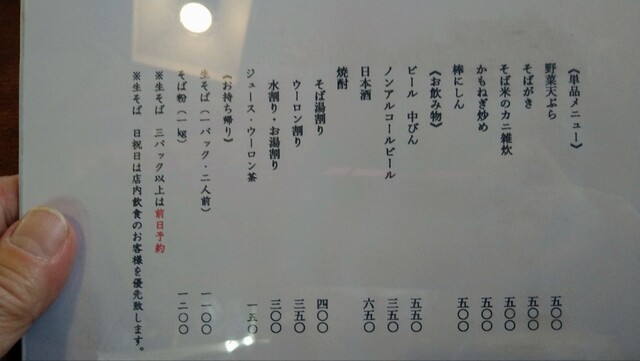 《単品メニュー》
野菜天ぷら 五〇〇
そばがき 五〇〇
そば米のカニ雑炊 五〇〇
かもねぎ炒め 五〇〇
棒にしん 五〇〇
《お飲み物》
ビール 中びん 五五〇
ノンアルコールビール 三五〇
日本酒 六五〇
焼酎
そば湯割り 四〇〇
ウーロン割り 三五〇
水割り・お湯割り 三〇〇
ジュース・ウーロン茶 一五〇
《お持ち帰り》
生そば(一パック・二人前) 一一〇〇
そば粉(一kg) 一二〇〇
※生そば 三パック以上は前日予約
※生そば 日祝日は店内飲食のお客様を優先致します。